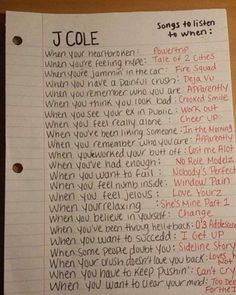 J COLE
Songs to listen
to when:
When your heartbroken: Powertrip
When you're feeling hype: Tale of 2 Cities
When you're jammin' in the car: Fire Squad
When you have a painful crush: Deja Vu
When you remember who you are: Apparently
When you think you look bad: Crooked Smile
When you see your ex in Public: Work Out
When you feel really alone: Cheer Up
When you've been liking someone: In the Morning
When you remember who you are: Apparently
When you worked your butt off: Let me Alot
When you've had enough: No Role Modelz
When you want to fail: Nobody's Perfect
When you feel numb inside: Window Pain
When you feel jealous: Love Yourz
When your relaxing: She's Mine Part 1
When you believe in yourself: Change
When you've been through hell+back: 03' Adolescence
When you want to succeed: I Get UP
When some people doubt you: Sideline Story
When your crush doesn't love you back: Love Not
When you have to keep Pushin': Can't Cry
When you want to clear your mind: Too Deep
For the I